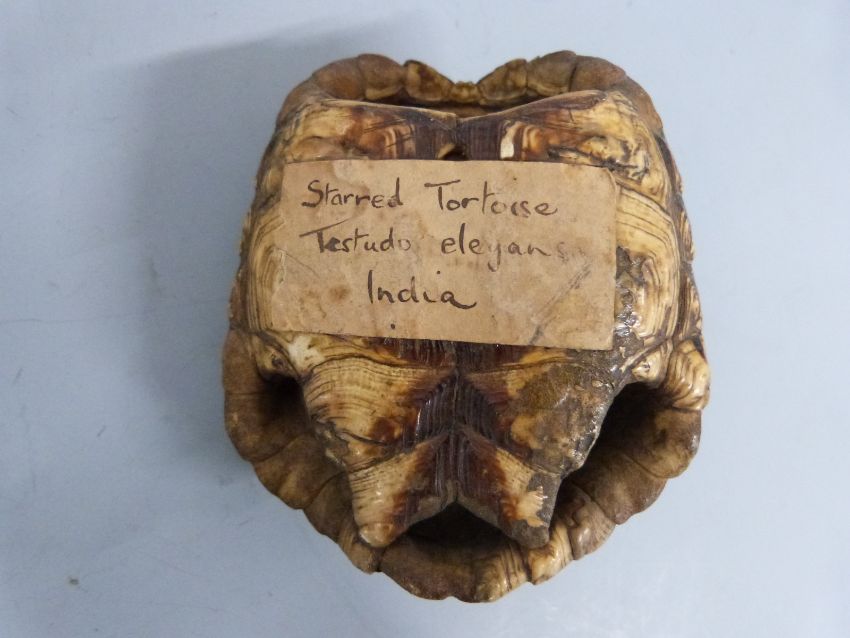 Starred Tortoise
Testudo elegans
India